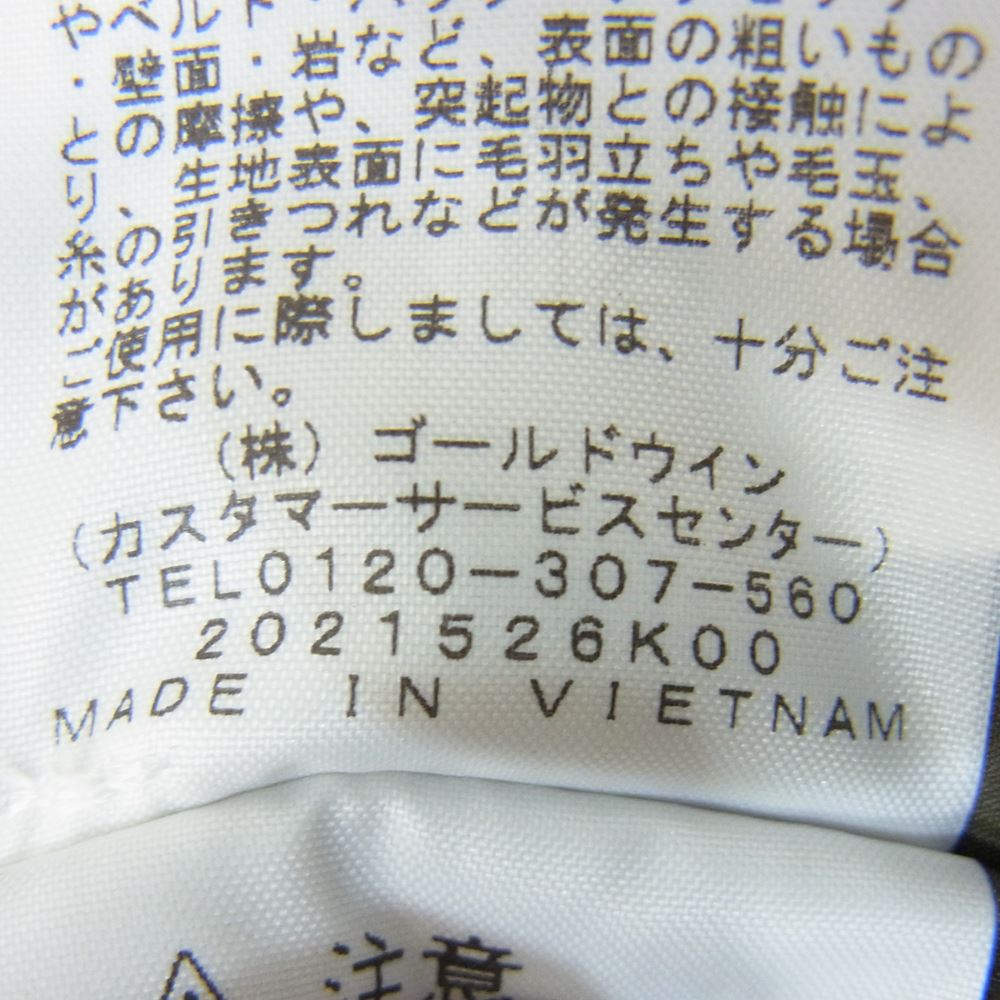 やベルト・
・壁面・岩など、表面の粗いもの
との摩擦や、突起物との接触によ
り、生地表面に毛羽立ちや毛玉、
糸の引きつれなどが発生する場合
があります。
ご使用に際しましては、十分ご注
意下さい。
(株)ゴールドウイン
(カスタマーサービスセンター)
TEL0120-307-560
2021526K00
MADE IN VIETNAM
注意